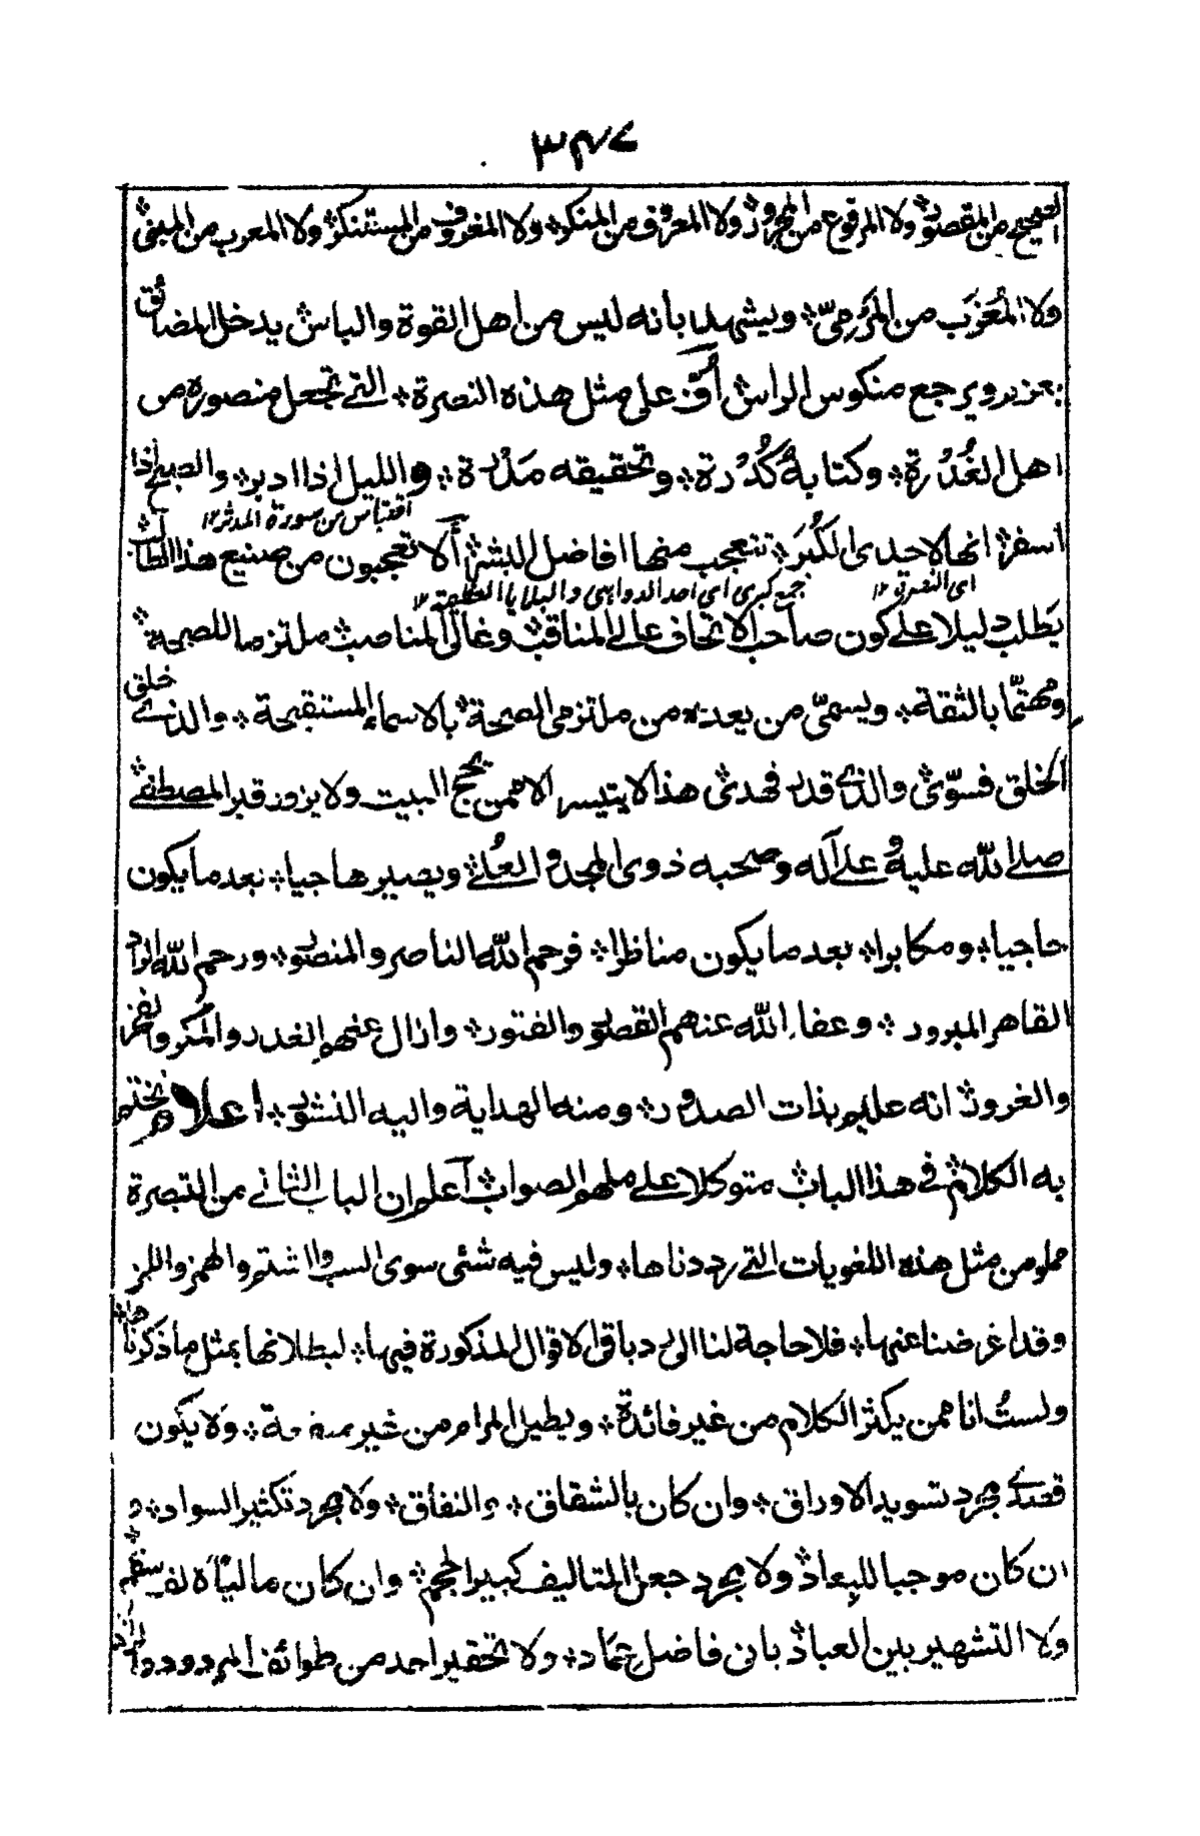 ٣٤٧
الصحيح من المقصور ولا المرفوع من المجرور ولا المعروف من المنكر ولا المعروف من المستنكر ولا المعرب من المبنى
ولا المغرب من المرمى ويشهد بانه ليس من اهل القوة والباس يدخل المضائق
بعز ويرجع منكوس الراس اُفّ على مثل هذه النصرة التي تجعل منصوره من
اهل الغُدُرة وكتابهُ كُدُرة وتحقيقه مَدرة والليل اذا ادبر والصبح اذا
اقتباس من سورة المدثر ١٢
اسفر انها لاحدى الكُبَر تتعجب منها افاضل البشر ألا تعجبون من صنيع هذا الطالب
اى النصرة ١٢ جمع كبرى اى احد الدواهى والبلايا العظيمة ١٢
يَطلب دليلا على كون صاحب الاتحاف عالى المناقب وغالى المناصب ملتزما للصحة
ومهتمّا بالثقة ويسمّى من يعده من ملتزمى الصحة بالاسماء المستقبحة والذى خلق
الخلق فسوّى والذى قدر فهدى هذا لا يتيسر الا ممن يحج البيت ولا يزور قبر المصطفى
صلى الله عليه وعلى آله وصحبه ذوى المجد والعُلى ويصير هاجيا بعد ما يكون
حاجيا ومكابرا بعد ما يكون مناظرا فرحم الله الناصر والمنصور ورحم الله الراد
القاهر المبرور وعفا الله عنهم القصور والفتور وازال عنهم الغدر والمكر والفخر
والغرور انه عليم بذات الصدور ومنه الهداية واليه النشور اعلام نختتم
به الكلام فى هذا الباب متوكلا على ملهم الصواب آعلم ان الباب الثانى من التبصرة
مملو من مثل هذه اللغويات التى رددناها وليس فيه شئى سوى السب والشتم والهمز واللمز
وقد اعرضنا عنها فلا حاجة لنا الى رد باقى الاقوال المذكورة فيها لبطلانها بمثل ما ذكرناها
ولستُ انا ممن يكثر الكلام من غير فائدة ويطيل المرام من غير منفعة وَلا يكون
قصدى مجرد تسويد الاوراق وان كان بالشقاق والنفاق ولا مجرد تكثير السواد و
ان كان موجبا للبعاد ولا مجرد جعل التاليف كبير الحجم وان كان مالياً
ولا التشهير بين العباد بانى فاضل عماد ولا تحقير احد من طوائف